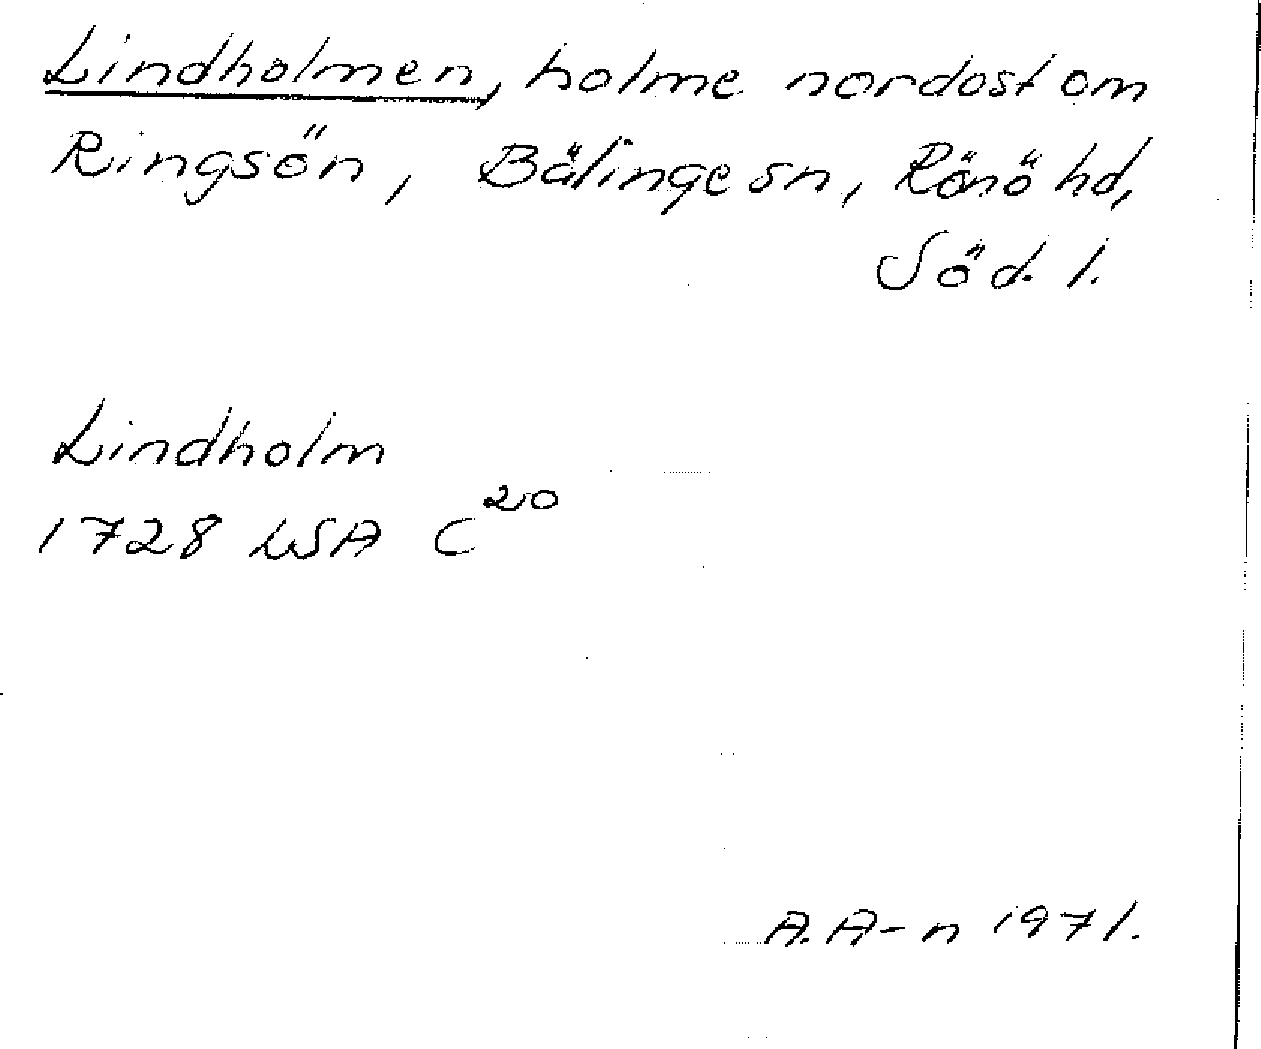 Lindholmen, holme nordost om
Ringsön, Bälinge sn, Rönö hd,
Söd. l.
Lindholm
1728 LSA C²⁰
A. A-n 1971.